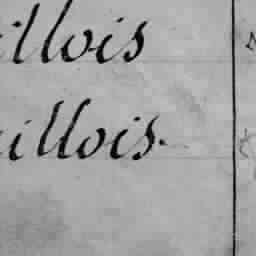 illois
illois.